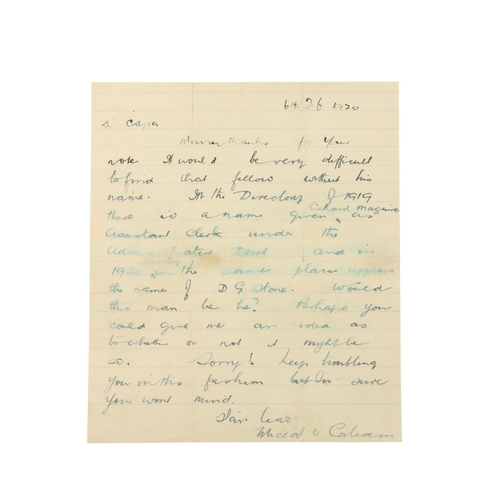 a Ċara
Many thanks for your
note. It would be very difficult
to find that fellow without his
name. In the Directory of 1919
there is a name given as
Richard Maguire
Assistant Clerk under the
Administrative Dept. and in
1920 in the same place appears
the name of D G Stone. Would
this man be he? Perhaps you
could give me an idea as
to whether or not it might be
so. Sorry to keep troubling
you in this fashion but I'm sure
you wont mind.